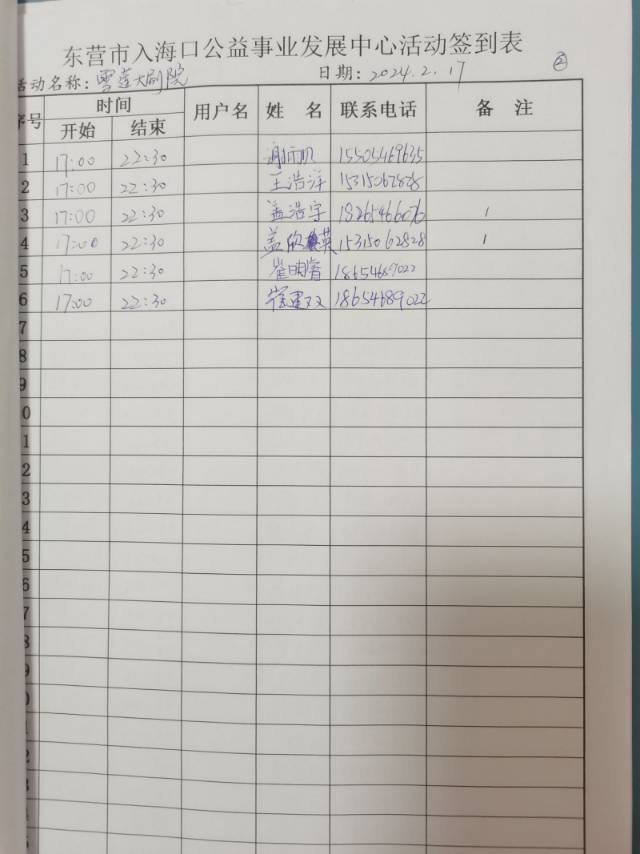 东营市入海口公益事业发展中心活动签到表
②
活动名称：雪莲大剧院 日期：2024.2.17
序号 时间 用户名 姓名 联系电话 备注
开始 结束
1 17:00 22:30 15505469635
2 17:00 22:30 王浩洋 15315062828
3 17:00 22:30 孟浩宇 18265466676 1
4 17:00 22:30 盖欣英 15315062828 1
5 17:00 22:30 崔明睿 18654689022
6 17:00 22:30 18654689022
7
8
9
0
1
2
3
4
5
6
7
8
9
0
1
2
3
4